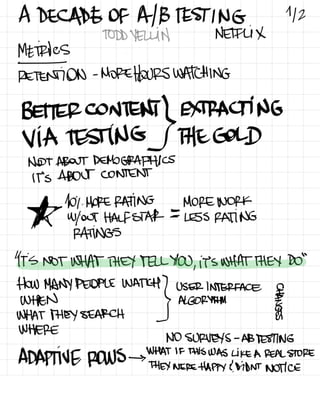 A DECADE OF A/B TESTING 1/2
TODD YELLIN NETFLIX
METRICS
RETENTION - MORE HOURS WATCHING
BETTER CONTENT } EXTRACTING
VIA TESTING THE GOLD
NOT ABOUT DEMOGRAPHICS
IT'S ABOUT CONTENT
10% MORE RATING MORE WORK
W/OUT HALF STAR = LESS RATING
RATINGS
"IT'S NOT WHAT THEY TELL YOU, IT'S WHAT THEY DO"
HOW MANY PEOPLE WATCH } USER INTERFACE
WHEN ALGORYTHM
WHAT THEY SEARCH
WHERE
CHANGES
NO SURVEYS - AB TESTING
ADAPTIVE ROWS → WHAT IF THIS WAS LIKE A REAL STORE
THEY WERE HAPPY & DIDNT NOTICE